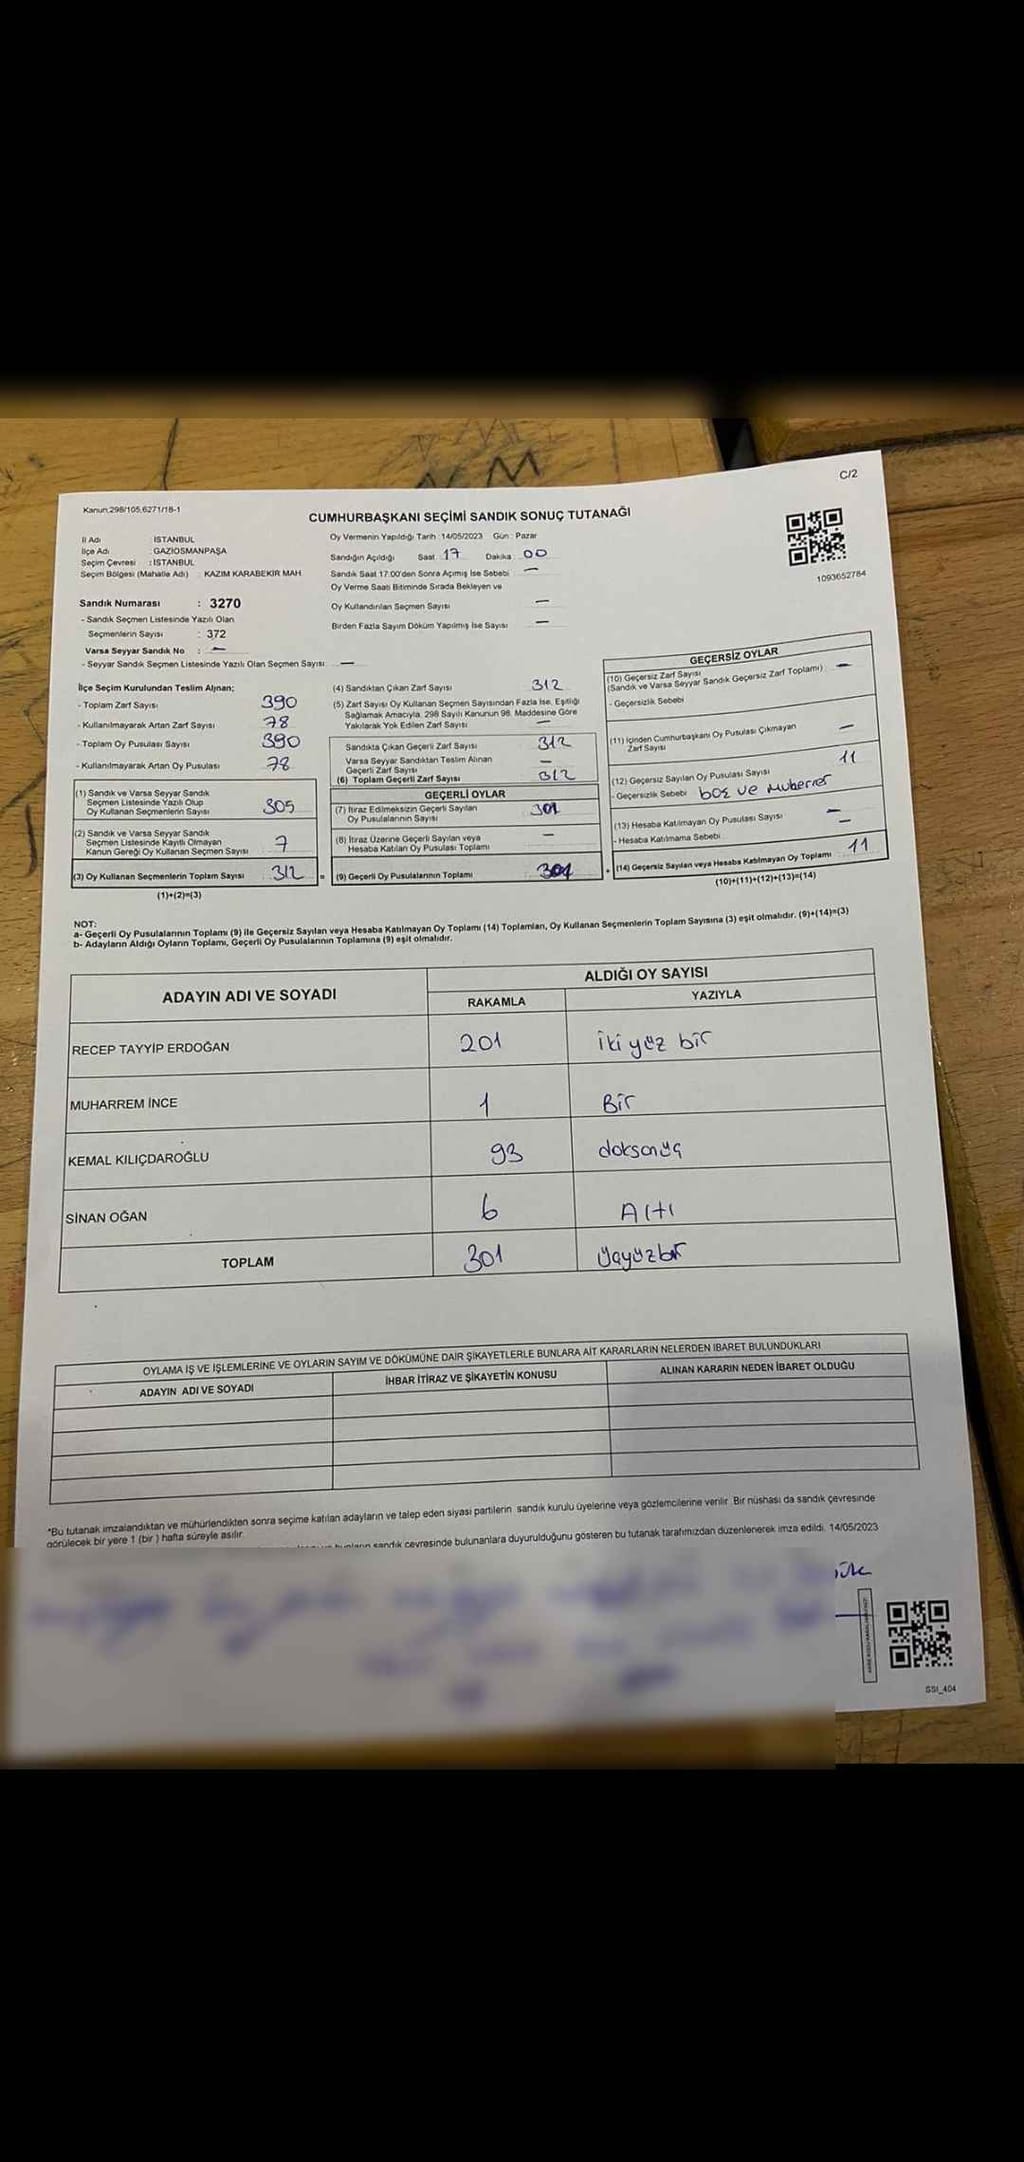 C/2
Kanun.298/105,6271/18-1
CUMHURBAŞKANI SEÇİMİ SANDIK SONUÇ TUTANAĞI
1093652784
İl Adı İSTANBUL
İlçe Adı : GAZİOSMANPAŞA
Seçim Çevresi : İSTANBUL
Seçim Bölgesi (Mahalle Adı) KAZIM KARABEKİR MAH.
Sandık Numarası : 3270
- Sandık Seçmen Listesinde Yazılı Olan
Seçmenlerin Sayısı : 372
Varsa Seyyar Sandık No : —
- Seyyar Sandık Seçmen Listesinde Yazılı Olan Seçmen Sayısı —
Oy Vermenin Yapıldığı Tarih : 14/05/2023 Gün : Pazar
Sandığın Açıldığı Saat 17 Dakika 00
Sandık Saat 17:00'den Sonra Açımış İse Sebebi —
Oy Verme Saati Bitiminde Sırada Bekleyen ve
Oy Kullandırılan Seçmen Sayısı —
Birden Fazla Sayım Döküm Yapılmış İse Sayısı —
İlçe Seçim Kurulundan Teslim Alınan;
- Toplam Zarf Sayısı 390
- Kullanılmayarak Artan Zarf Sayısı 78
- Toplam Oy Pusulası Sayısı 390
- Kullanılmayarak Artan Oy Pusulası 78
(1) Sandık ve Varsa Seyyar Sandık
Seçmen Listesinde Yazılı Olup
Oy Kullanan Seçmenlerin Sayısı 305
(2) Sandık ve Varsa Seyyar Sandık
Seçmen Listesinde Kayıtlı Olmayan
Kanun Gereği Oy Kullanan Seçmen Sayısı 7
(3) Oy Kullanan Seçmenlerin Toplam Sayısı 312 =
(1)+(2)=(3)
(4) Sandıktan Çıkan Zarf Sayısı 312
(5) Zarf Sayısı Oy Kullanan Seçmen Sayısından Fazla İse, Eşitliği
Sağlamak Amacıyla, 298 Sayılı Kanunun 98. Maddesine Göre
Yakılarak Yok Edilen Zarf Sayısı —
Sandıkta Çıkan Geçerli Zarf Sayısı 312
Varsa Seyyar Sandıktan Teslim Alınan
Geçerli Zarf Sayısı —
(6) Toplam Geçerli Zarf Sayısı 312
GEÇERLİ OYLAR
(7) İtiraz Edilmeksizin Geçerli Sayılan
Oy Pusulalarının Sayısı 301
(8) İtiraz Üzerine Geçerli Sayılan veya
Hesaba Katılan Oy Pusulası Toplamı —
(9) Geçerli Oy Pusulalarının Toplamı 301
GEÇERSİZ OYLAR
(10) Geçersiz Zarf Sayısı —
(Sandık ve Varsa Seyyar Sandık Geçersiz Zarf Toplamı)
- Geçersizlik Sebebi
(11) İçinden Cumhurbaşkanı Oy Pusulası Çıkmayan —
Zarf Sayısı
(12) Geçersiz Sayılan Oy Pusulası Sayısı 11
- Geçersizlik Sebebi boş ve Muberrer
(13) Hesaba Katılmayan Oy Pusulası Sayısı —
- Hesaba Katılmama Sebebi —
+ (14) Geçersiz Sayılan veya Hesaba Katılmayan Oy Toplamı 11
(10)+(11)+(12)+(13)=(14)
NOT:
a- Geçerli Oy Pusulalarının Toplamı (9) ile Geçersiz Sayılan veya Hesaba Katılmayan Oy Toplamı (14) Toplamları, Oy Kullanan Seçmenlerin Toplam Sayısına (3) eşit olmalıdır. (9)+(14)=(3)
b- Adayların Aldığı Oyların Toplamı, Geçerli Oy Pusulalarının Toplamına (9) eşit olmalıdır.
ADAYIN ADI VE SOYADI
ALDIĞI OY SAYISI
RAKAMLA YAZIYLA
RECEP TAYYİP ERDOĞAN 201 iki yüz bir
MUHARREM İNCE 1 Bir
KEMAL KILIÇDAROĞLU 93 doksanüç
SİNAN OĞAN 6 Altı
TOPLAM 301 üçyüzbir
OYLAMA İŞ VE İŞLEMLERİNE VE OYLARIN SAYIM VE DÖKÜMÜNE DAİR ŞİKAYETLERLE BUNLARA AİT KARARLARIN NELERDEN İBARET BULUNDUKLARI
ADAYIN ADI VE SOYADI İHBAR İTİRAZ VE ŞİKAYETİN KONUSU ALINAN KARARIN NEDEN İBARET OLDUĞU
*Bu tutanak imzalandıktan ve mühürlendikten sonra seçime katılan adayların ve talep eden siyasi partilerin sandık kurulu üyelerine veya gözlemcilerine verilir. Bir nüshası da sandık çevresinde
görülecek bir yere 1 (bir) hafta süreyle asılır.
sandık çevresinde bulunanlara duyurulduğunu gösteren bu tutanak tarafımızdan düzenlenerek imza edildi. 14/05/2023
SSI_404